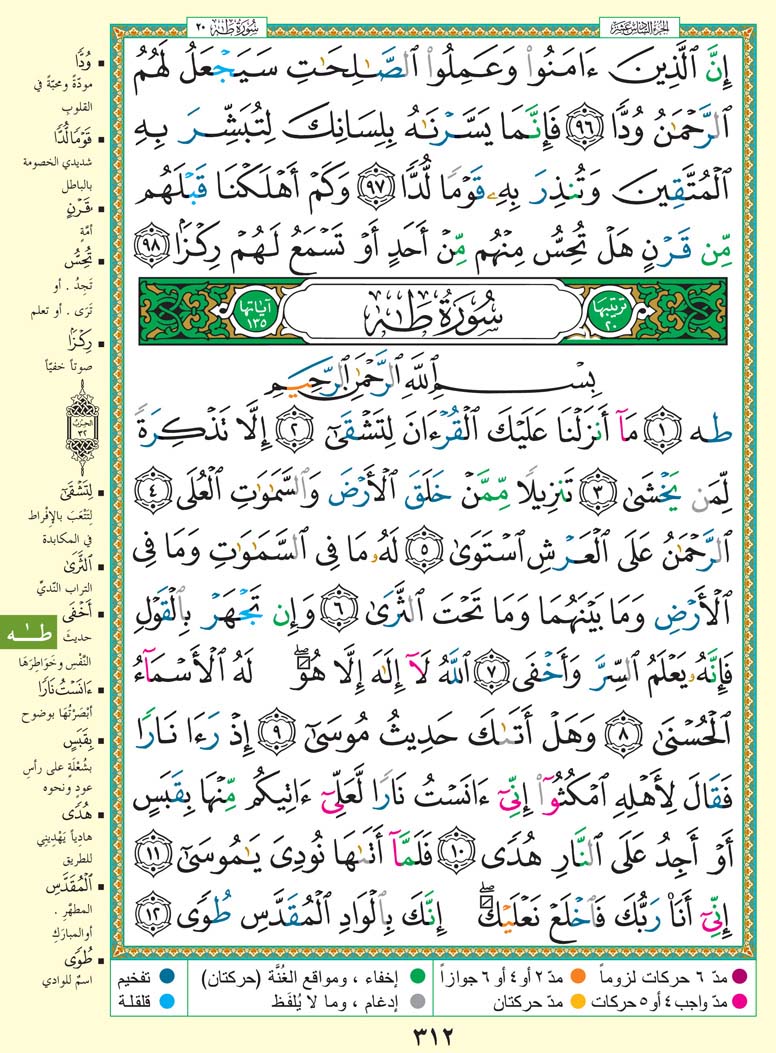 سُورَةُ طٰهٰ ٢٠
الجزء السادس عشر
إِنَّ ٱلَّذِينَ ءَامَنُوا۟ وَعَمِلُوا۟ ٱلصَّـٰلِحَـٰتِ سَيَجْعَلُ لَهُمُ
ٱلرَّحْمَـٰنُ وُدًّا ٩٦ فَإِنَّمَا يَسَّرْنَـٰهُ بِلِسَانِكَ لِتُبَشِّرَ بِهِ
ٱلْمُتَّقِينَ وَتُنذِرَ بِهِۦ قَوْمًا لُّدًّا ٩٧ وَكَمْ أَهْلَكْنَا قَبْلَهُم
مِّن قَرْنٍ هَلْ تُحِسُّ مِنْهُم مِّنْ أَحَدٍ أَوْ تَسْمَعُ لَهُمْ رِكْزًۢا ٩٨
ترتيبها ٢٠
سُورَةُ طٰهٰ
آياتها ١٣٥
بِسْمِ ٱللَّهِ ٱلرَّحْمَـٰنِ ٱلرَّحِيمِ
طه ١ مَآ أَنزَلْنَا عَلَيْكَ ٱلْقُرْءَانَ لِتَشْقَىٰٓ ٢ إِلَّا تَذْكِرَةً
لِّمَن يَخْشَىٰ ٣ تَنزِيلًا مِّمَّنْ خَلَقَ ٱلْأَرْضَ وَٱلسَّمَـٰوَٰتِ ٱلْعُلَى ٤
ٱلرَّحْمَـٰنُ عَلَى ٱلْعَرْشِ ٱسْتَوَىٰ ٥ لَهُۥ مَا فِى ٱلسَّمَـٰوَٰتِ وَمَا فِى
ٱلْأَرْضِ وَمَا بَيْنَهُمَا وَمَا تَحْتَ ٱلثَّرَىٰ ٦ وَإِن تَجْهَرْ بِٱلْقَوْلِ
فَإِنَّهُۥ يَعْلَمُ ٱلسِّرَّ وَأَخْفَى ٧ ٱللَّهُ لَآ إِلَـٰهَ إِلَّا هُوَ ۖ لَهُ ٱلْأَسْمَآءُ
ٱلْحُسْنَىٰ ٨ وَهَلْ أَتَىٰكَ حَدِيثُ مُوسَىٰٓ ٩ إِذْ رَءَا نَارًا
فَقَالَ لِأَهْلِهِ ٱمْكُثُوٓا۟ إِنِّىٓ ءَانَسْتُ نَارًا لَّعَلِّىٓ ءَاتِيكُم مِّنْهَا بِقَبَسٍ
أَوْ أَجِدُ عَلَى ٱلنَّارِ هُدًى ١٠ فَلَمَّآ أَتَىٰهَا نُودِىَ يَـٰمُوسَىٰٓ ١١
إِنِّىٓ أَنَا۠ رَبُّكَ فَٱخْلَعْ نَعْلَيْكَ ۖ إِنَّكَ بِٱلْوَادِ ٱلْمُقَدَّسِ طُوًى ١٢
وُدًّا
مودّةً ومحبّةً في
القلوبِ
قَوْمًا لُّدًّا
شديدي الخصومة
بالباطل
قَرْنٍ
أمّةٍ
تُحِسُّ
تَجِدُ . أو
تَرَى . أو تعلم
رِكْزًا
صوتاً خفيّاً
الحزب
٣٢
لِتَشْقَىٰٓ
لِتَتْعَبَ بالإفراط
في المكابدة
ٱلثَّرَىٰ
التراب النّديِّ
أَخْفَى
حديثَ
النَّفْسِ وخَوَاطِرَهَا
ءَانَسْتُ نَارًا
أبْصَرْتُهَا بوضوح
بِقَبَسٍ
بشُعْلَةٍ على رأسِ
عودٍ ونحوه
هُدًى
هادياً يَهْدِينِي
للطريق
ٱلْمُقَدَّسِ
المطهَّرِ .
أو المبارَكِ
طُوًى
اسمٌ للوادي
طـٰه
مدّ ٦ حركات لزوماً مدّ ٢ أو ٤ أو ٦ جوازاً إخفاء ، ومواقع الغُنَّة (حركتان) تفخيم
مدّ واجب ٤ أو ٥ حركات مدّ حركتان إدغام ، وما لا يُلفَظ قلقلة
٣١٢